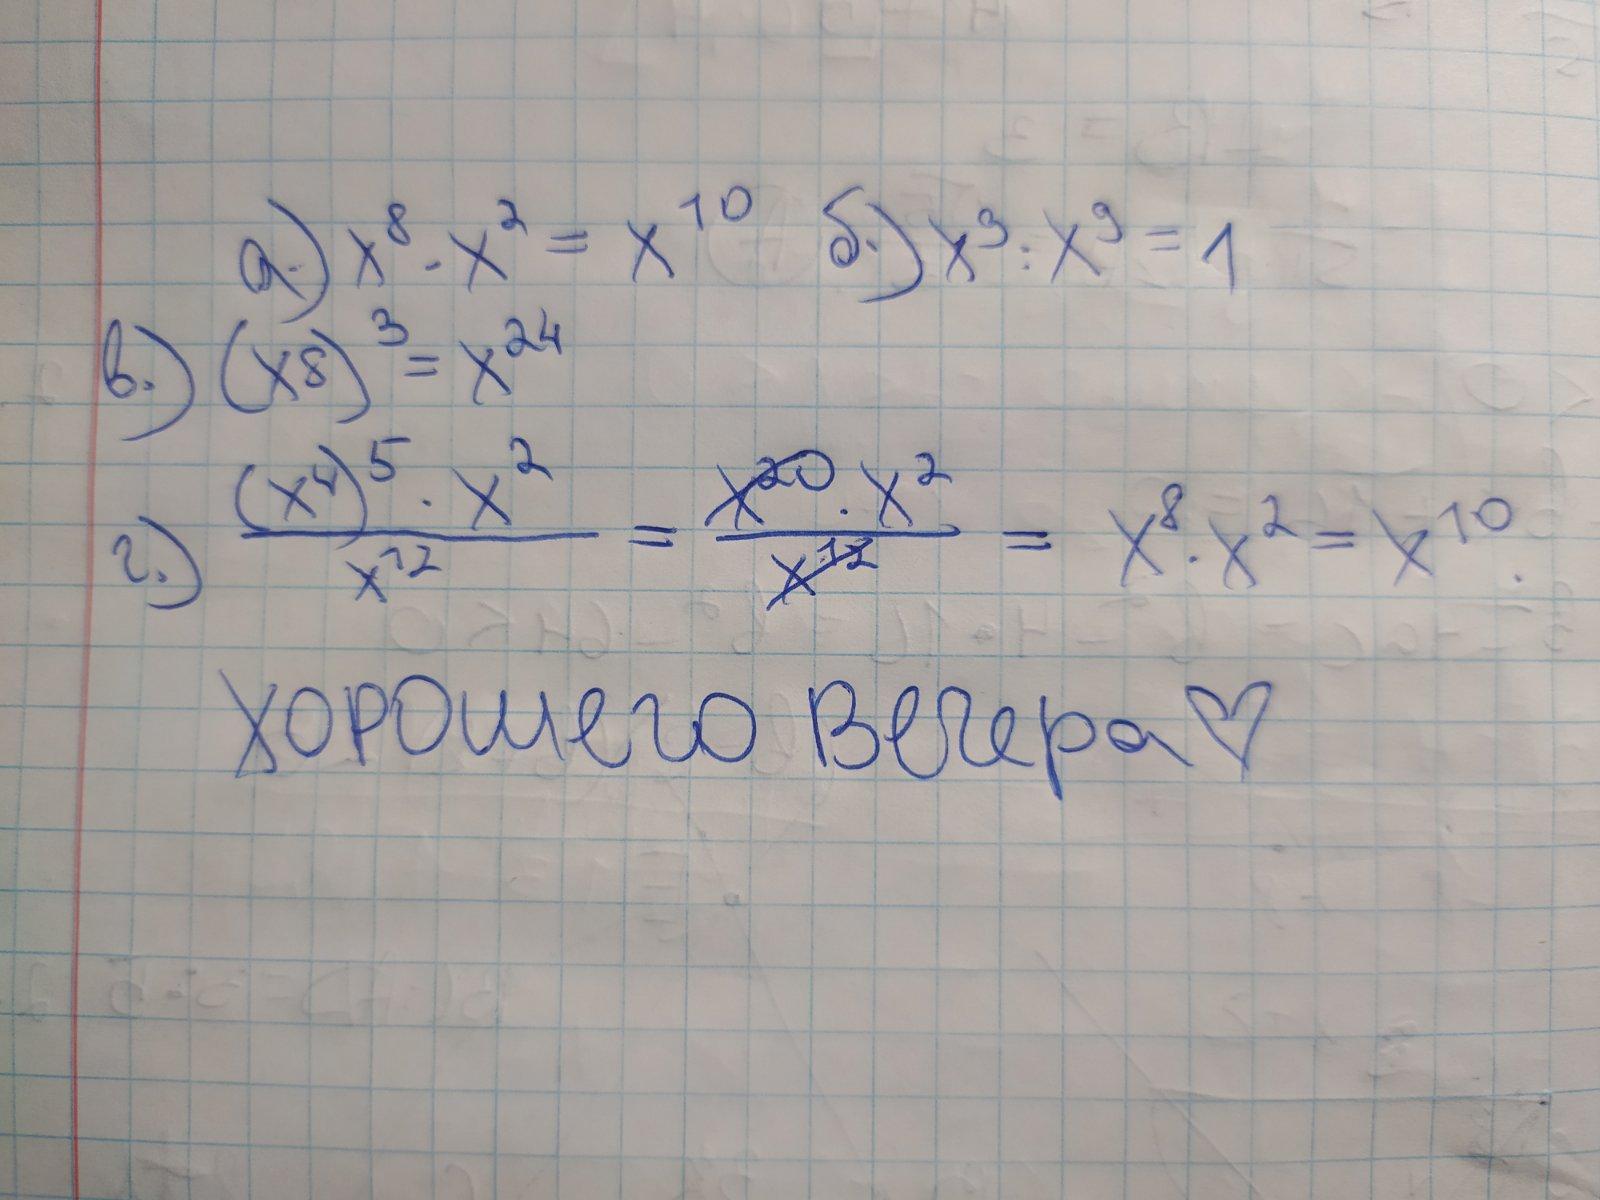 а.) x⁸ · x² = x¹⁰ б.) x⁹ : x⁹ = 1
в.) (x⁸)³ = x²⁴
г.) (x⁴)⁵ · x² / x¹² = x²⁰ · x² / x¹² = x⁸ · x² = x¹⁰.
Хорошего Вечера ♡